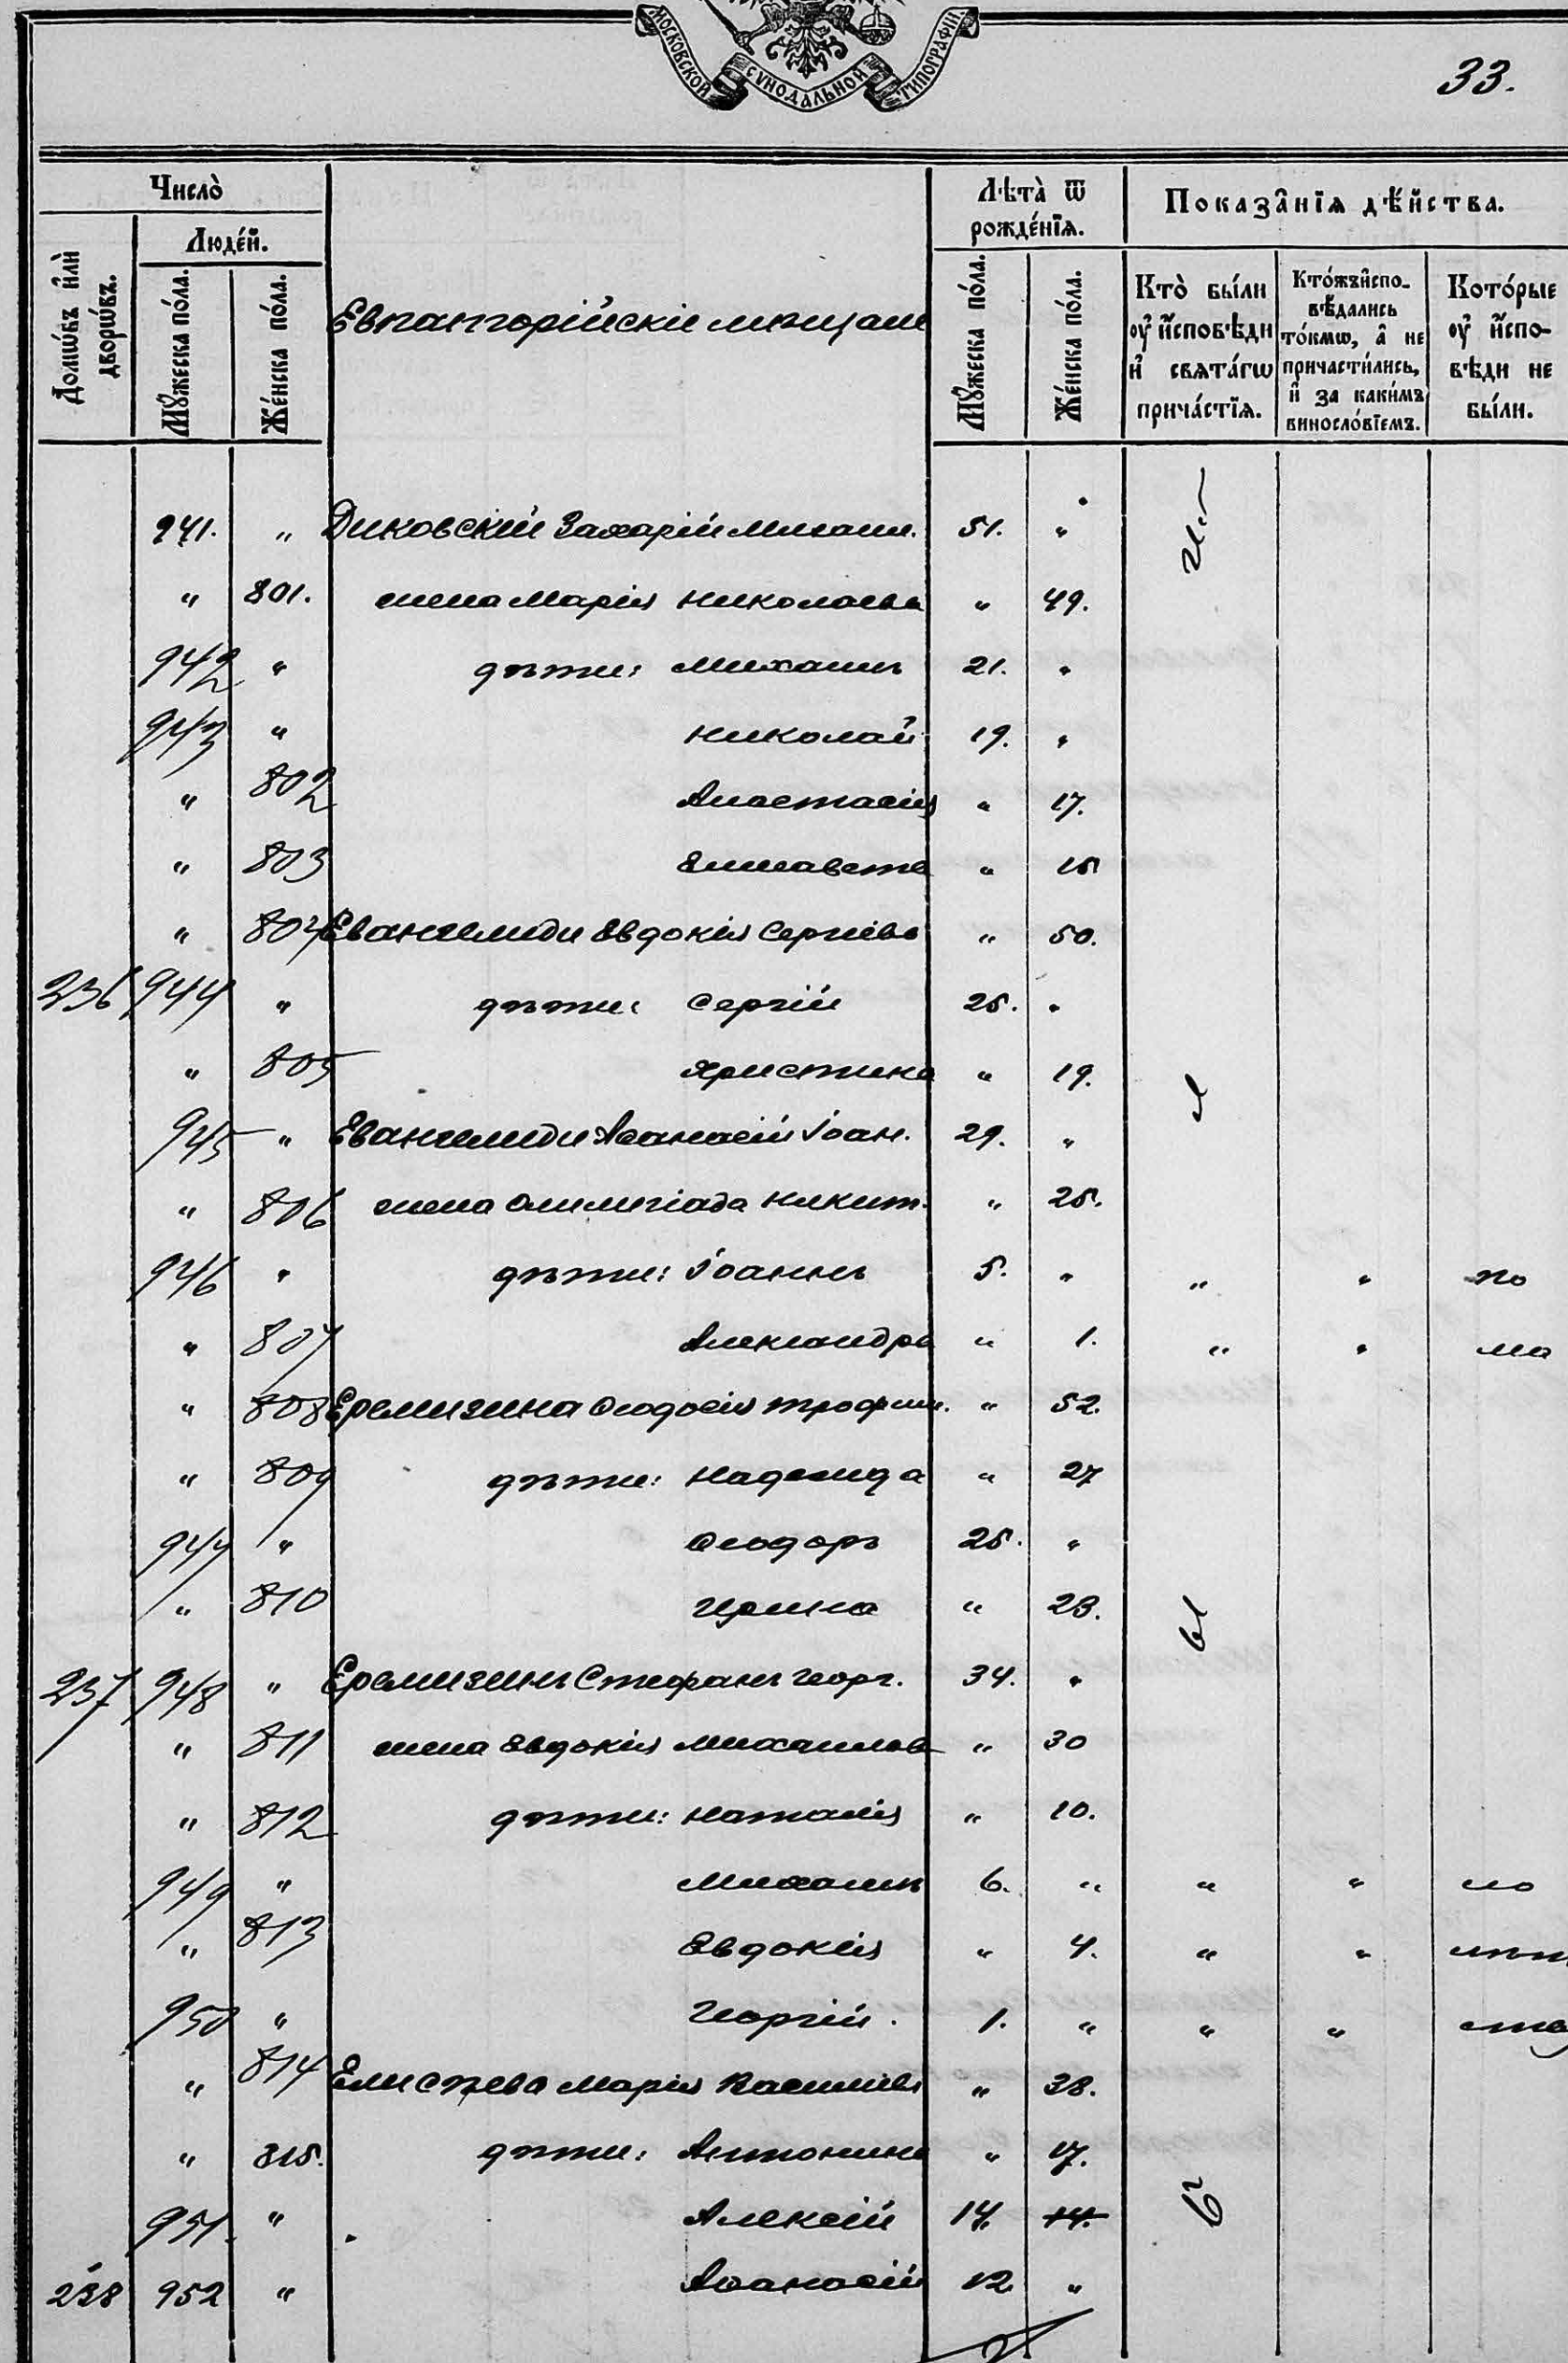 МОСКОВСКОЙ СѴНОДАЛЬНОЙ ТИПОГРАФІИ
33.
Число̀
Людéй.
Домѡ́въ и҆лѝ дворѡ́въ.
Мꙋ́жеска по́ла.
Же́нска по́ла.
Евпаторійскіе мѣщане
Лѣта̀ ѿ рожде́нїѧ.
Мꙋ́жеска по́ла.
Же́нска по́ла.
Показа̑нїѧ дѣ́йства.
Кто̀ бы́ли ᲂу҆ и҆сповѣди и҆ свѧта́гѡ прича́стїѧ.
Кто́жъ и҆сповѣдались то́кмѡ, а҆ не причасти́лись, и҆ за каки́мъ винослóвїемъ.
Кото́рые ᲂу҆ и҆сповѣди не бы́ли.
941. " Диковскій Захарій Михаил. 51. "
" 801. жена Марія Николаева " 49.
942 " дѣти: Михаилъ 21. "
943 " Николай 19. "
" 802 Анастасія " 17.
" 803 Елисавета " 15
" 804 Евангелиди Евдокія Сергіева " 50.
236 944 " дѣти: Сергій 25. "
" 805 Христина " 19.
945 " Евангелиди Аѳанасій Іоан. 29. "
" 806 жена Олимпіада Никит. " 25.
946 " дѣти: Іоаннъ 5. " " " по
" 807 Александра " 1. " " ма
" 808 Еремизина Ѳеодосія Трофим. " 52.
" 809 дѣти: Надежда " 27
947 " Ѳеодоръ 25. "
" 810 Ирина " 23.
237 948 " Еремизинъ Стефанъ Георг. 34. "
" 811 жена Евдокія Михаилов " 30
" 812 дѣти: Наталія " 10.
949 " Михаилъ 6. " " " ло
" 813 Евдокія " 4. " "
950 " Георгій. 1. " " "
" 814 Елисѣева Марія Васильев " 38.
" 815. дѣти: Антонина " 17.
951. " Алексій 14. 14.
238 952 " Аѳанасій 12 "